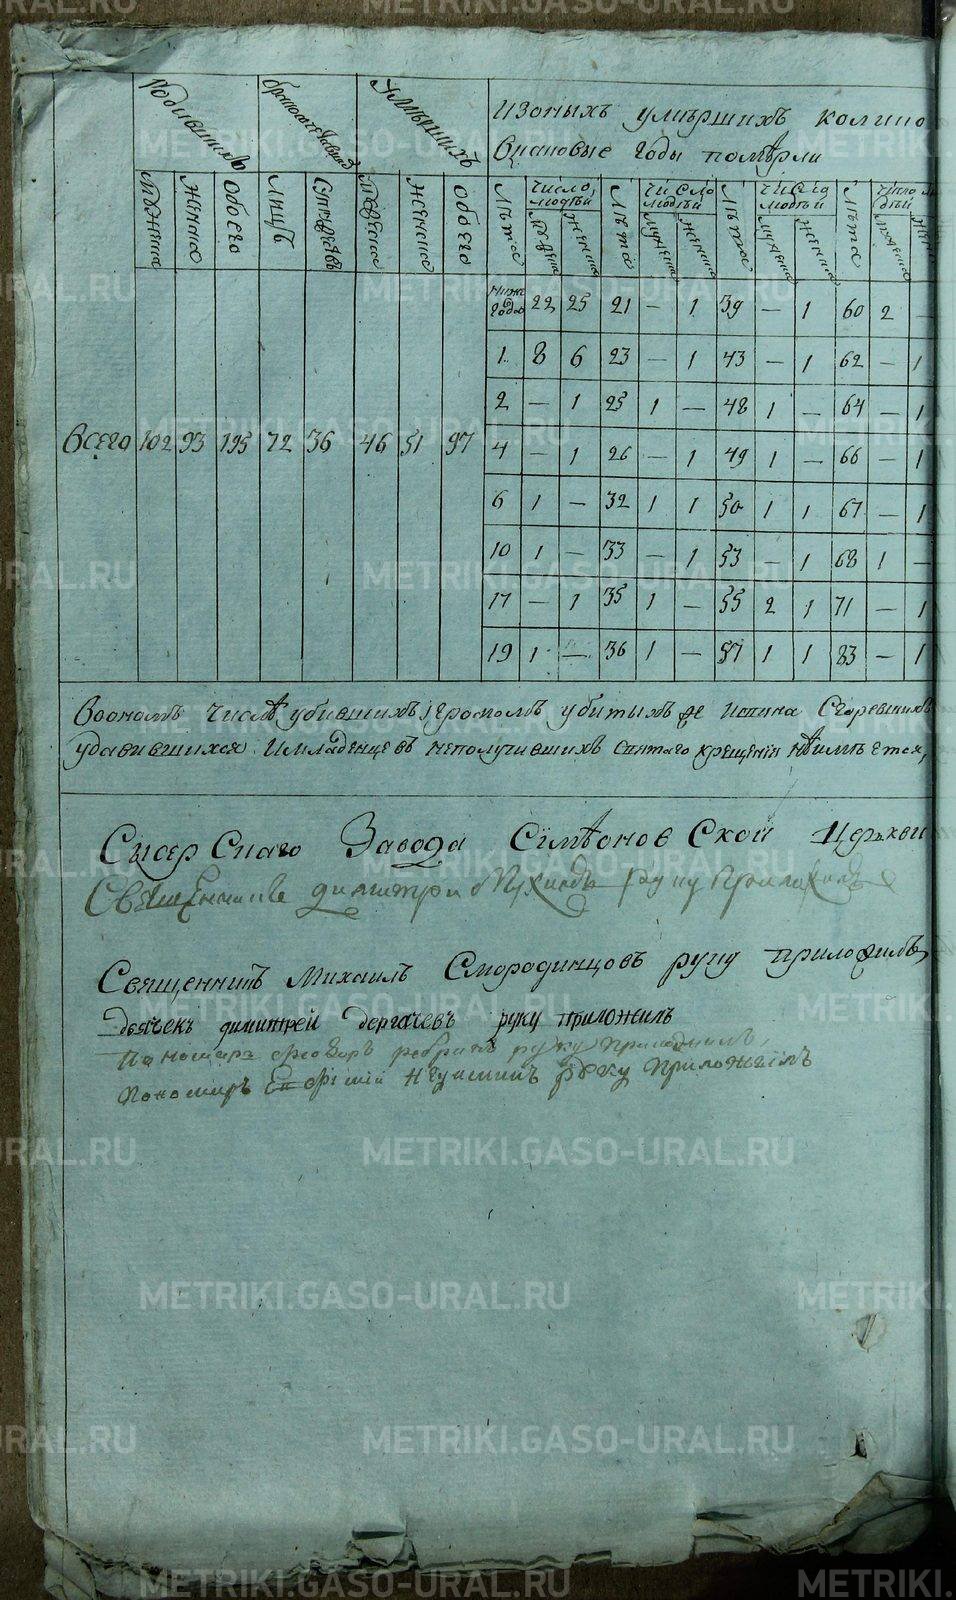 Родившихся
Бракосочетавшихся
Умершихъ
Изоныхъ умершихъ колико
Вкаковые годы помѣрли
мужеска женска обоего лицъ супружествъ мужеска женска обоего
лѣта число людей мужеска женска лѣта число людей мужеска женска лѣта число людей мужеска женска лѣта число людей мужеска женска
ниже года 22 25 21 — 1 39 — 1 60 2 —
1 8 6 23 — 1 43 — 1 62 — 1
2 — 1 25 1 — 48 1 — 64 — 1
Всего 102 93 195 72 36 46 51 97
4 — 1 26 — 1 49 1 — 66 — 1
6 1 — 32 1 1 50 1 1 67 — 1
10 1 — 33 — 1 53 — 1 68 1 —
17 — 1 35 1 — 55 2 1 71 — 1
19 1 — 36 1 — 57 1 1 83 — 1
Воономъ числѣ убившихъ, громомъ убитыхъ Сгоревшихъ
удавившихся. Имладенцевъ неполучившихъ святаго крещенія неимѣется,
Сысерскаго Завода Сімѣоновской Церькви
Священникъ димитри руку приложилъ
Священникъ Михаилъ Смородинцовъ руку приложилъ
дьячекъ димитрей дергачевъ руку приложилъ
Пономарь руку приложилъ,
Пономарь руку приложилъ
METRIKI.GASO-URAL.RU